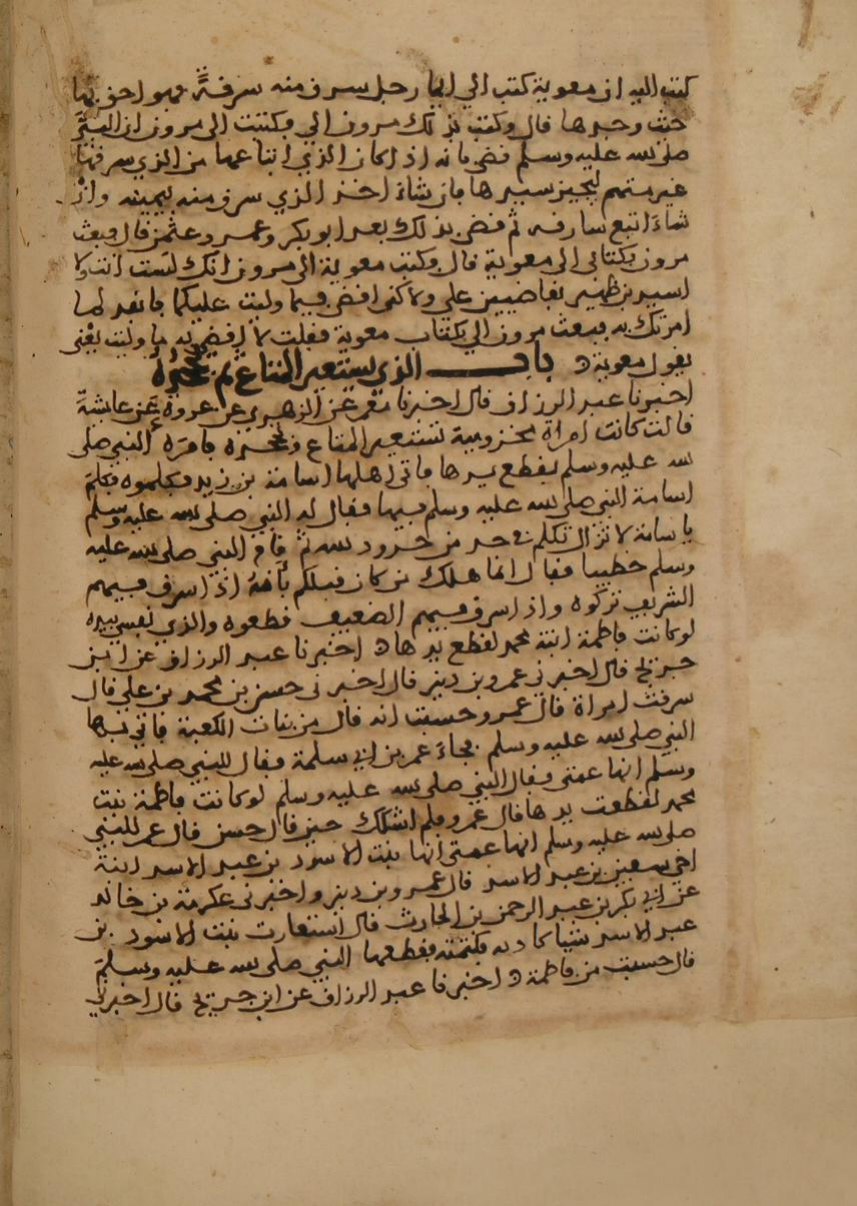 كتب اليه ان معوية كتب الي ايما رجل سرق منه سرقة فهو احق بها
حيث وجدها قال وكتب بذلك مروان الي وكتبت الى مروان ان النبي
صلى الله عليه وسلم قضى بانه اذا كان الذي ابتاعها من الذي سرقها
غير متهم يخير سيدها فان شاء اخذ الذي سرق منه بثمنه وان
شاء اتبع سارقه ثم قضى بذلك بعد ابو بكر وعمر وعثمن قال فبعث
مروان بكتابي الى معوية قال وكتب معوية الى مروان انك لست انت ولا
اسيد بن ظهير بقاضيين علي ولاكني اقضي فيما وليت عليكما فانفذ لما
امرتك به فبعث مروان الي بكتاب معوية فقلت لا اقضي به ما وليت يعني
بقول معوية باب الذي يستعير المتاع ثم يجحده
اخبرنا عبد الرزاق قال اخبرنا معمر عن الزهري عن عروة عن عايشة
قالت كانت امراة مخزومية تستعير المتاع وتجحده فامر النبي صلى
الله عليه وسلم بقطع يدها فاتى اهلها اسامة بن زيد فكلموه فكلم
اسامة النبي صلى الله عليه وسلم فيها فقال له النبي صلى الله عليه وسلم
يا سامة لا تزال تكلم في حد من حدود الله ثم قام النبي صلى الله عليه
وسلم خطيبا فقال انما هلك من كان قبلكم بانه اذا سرق فيهم
الشريف تركوه واذا سرق فيهم الضعيف قطعوه والذي نفسي بيده
لو كانت فاطمة ابنة محمد لقطع يدها اخبرنا عبد الرزاق عن ابن
جريج قال اخبرني عمرو بن دينر قال اخبرني حسن بن محمد بن علي قال
سرقت امراة قال عمرو وحسبت انه قال من بنات الكعبة فاتي بها
النبي صلى الله عليه وسلم فجاء عمر بن ابي سلمة فقال للنبي صلى الله عليه
وسلم انها عمتي فقال النبي صلى الله عليه وسلم لو كانت فاطمة بنت
محمد لقطعت يدها قال عمرو فلم اشكك حين قال حسن قال عمر للنبي
صلى الله عليه وسلم انها عمتي انها بنت الاسود بن عبد الاسد ابنة
اخي سفين بن عبد الاسد قال عمرو بن دينر واخبرني عكرمة بن خالد
عن ابي بكر بن عبد الرحمن بن الحارث قال استعارت بنت الاسود بن
عبد الاسد شيا كاذبه فكتمته فقطعها النبي صلى الله عليه وسلم
قال حسبت من فاطمة اخبرنا عبد الرزاق عن ابن جريج قال اخبرني